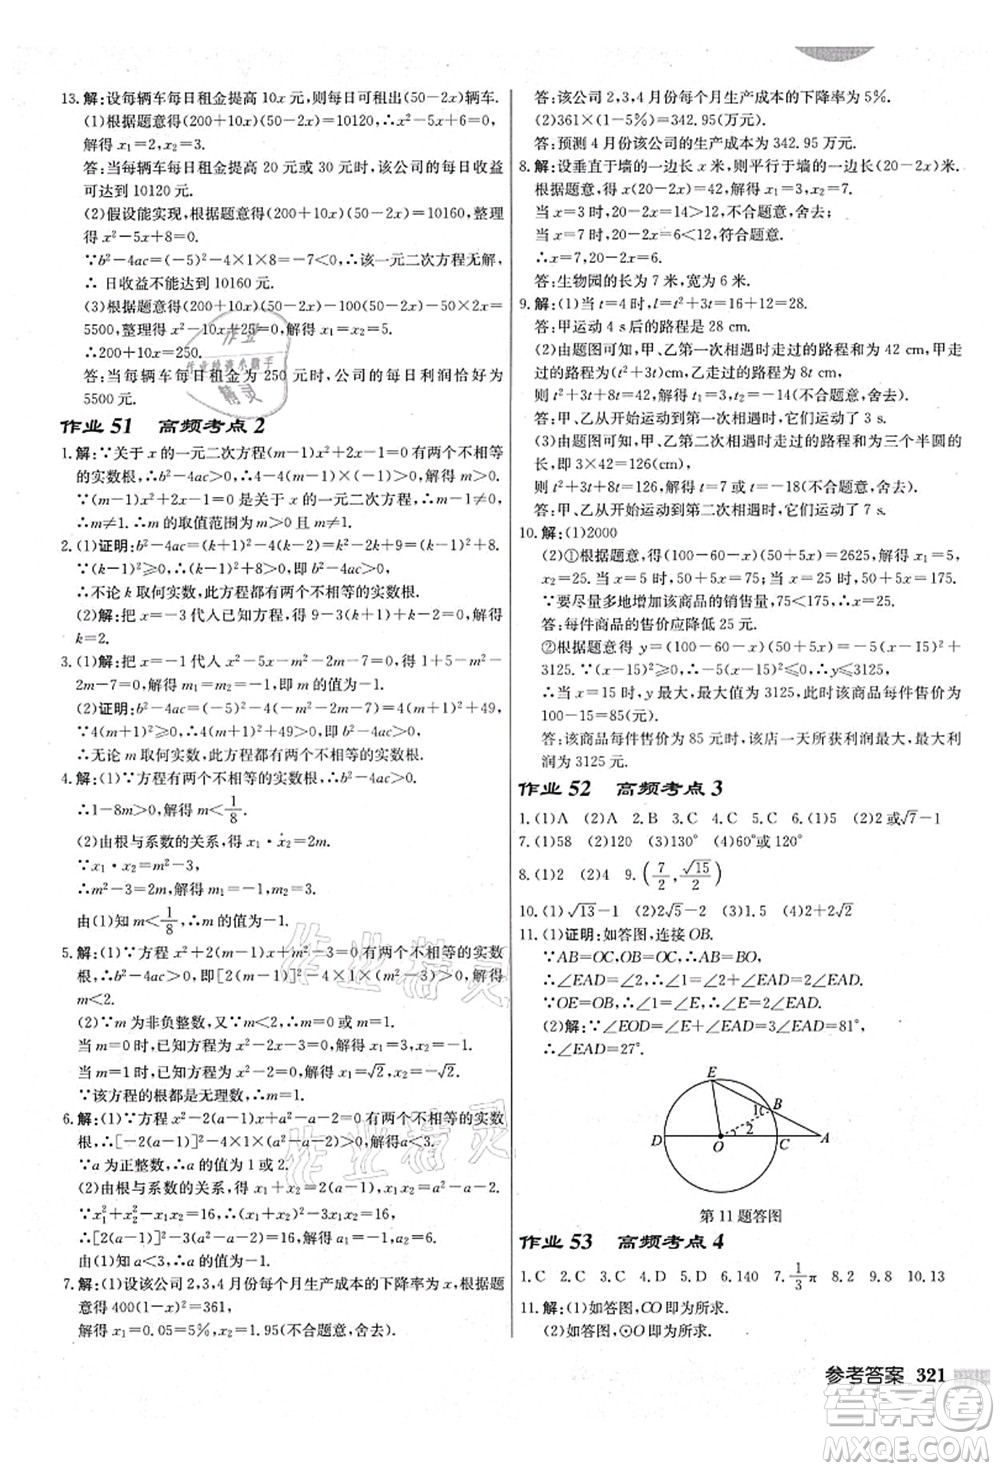 13. 解:设每辆车每日租金提高 10x 元,则每日可租出(50-2x)辆车.
(1)根据题意得(200+10x)(50-2x)=10120,
解得 x₁=2,x₂=3.
答:当每辆车每日租金提高 20 元或 30 元时,该公司的每日收益
可达到 10120 元.
(2)假设能实现,根据题意得(200+10x)(50-2x)=10160,整理
得 x²-5x+8=0.
∵b²-4ac=(-5)²-4×1×8=-7<0,∴该一元二次方程无解,
∴ 日收益不能达到 10160 元.
(3)根据题意得(200+10x)(50-2x)-100(50-2x)-50×2x=
5500,整理得 x²-10x+25=0.
∴200+10x=250.
答:当每辆车每日租金为 250 元时,公司的每日利润恰好为
5500 元.
作业 51 高频考点 2
1. 解:∵关于 x 的一元二次方程(m-1)x²+2x-1=0 有两个不相等
的实数根,∴b²-4ac>0,∴4-4(m-1)×(-1)>0,解得 m>0.
∵(m-1)x²+2x-1=0 是关于 x 的一元二次方程,∴m-1≠0,
∴m≠1.∴m 的取值范围为 m>0 且 m≠1.
2. (1)证明:b²-4ac=(k+1)²-4(2k-2)=k²-6k+9=(k-1)²+8.
∵(k-1)²≥0,∴(k-1)²+8>0,即 b²-4ac>0,
∴不论 k 取何实数,此方程都有两个不相等的实数根.
(2)解:把 x=-3 代入已知方程,得 9-3(k+1)+2k-2=0,解得
k=2.
3. (1)解:把 x=-1 代入 x²-5x-m²-2m-7=0,得 1+5-m²-
2m-7=0,解得 m₁=m₂=-1.
(2)证明:b²-4ac=(-5)²-4(-m²-2m-7)=4(m+1)²+49,
∵4(m+1)²≥0,∴4(m+1)²+49>0,即 b²-4ac>0,
∴无论 m 取何实数,此方程都有两个不相等的实数根.
4. 解:(1)∵方程有两个不相等的实数根,∴b²-4ac>0,
∴1-8m>0,解得 m<1/8.
(2)由根与系数的关系,得 x₁·x₂=2m.
∵x₁·x₂=m²-3,
∴m²-3=2m,解得 m₁=-1,m₂=3.
由(1)知 m<1/8,∴m 的值为-1.
5. 解:(1)∵方程 x²+2(m-1)x+m²-1=0 有两个不相等的实数
根,∴b²-4ac>0,即[2(m-1)]²-4×1×(m²-1)>0,解得
m<2.
(2)∵m 为非负整数,∴m=0 或 m=1.
当 m=0 时,已知方程为 x²-2x-1=0,
当 m=1 时,已知方程为 x²-2=0,解得 x₁=√2,x₂=-√2,
∵该方程的根都是无理数,∴m=1.
6. 解:(1)∵方程 x²-2(a-1)x+a²-a-2=0 有两个不相等的实
数根,∴[-2(a-1)]²-4×1×(a²-a-2)>0,解得a<3.
∵a 为正整数,∴a 的值为 1 或 2.
(2)由根与系数的关系,得 x₁+x₂=2(a-1),x₁x₂=a²-a-2.
∵x₁²+x₂²-x₁x₂=16,∴(x₁+x₂)²-3x₁x₂=16,
∴[2(a-1)]²-3(a²-a-2)=16,解得 a₁=-1,a₂=6.
由(1)知 a<3,∴a 的值为-1.
7. 解:(1)设该公司 2,3,4 月份每个月生产成本的下降率为 x,根据题
意得 400(1-x)²=361,
解得 x₁=0.05=5%,x₂=1.95(不符合题意,舍去).
答:该公司 2,3,4 月份每个月生产成本的下降率为 5%.
(2)361×(1-5%)=342.95(万元).
答:预测 4 月份该公司的生产成本为 342.95 万元.
8. 解:设垂直于墙的一边长 x 米,则平行于墙的一边长(20-2x)米.
根据题意,得 x(20-2x)=42,解得 x₁=3,x₂=7.
当 x=3 时,20-2x=14>7,不合题意,舍去;
当 x=7 时,20-2x=6<7,符合题意.
∴20-2x=6.
答:生物园的长为 7 米,宽为 6 米.
9. 解:(1)当 t=4 时,t²+3t=16+12=28.
答:甲运动 4 s后的路程是 28 cm.
(2)由题图可知,甲、乙第一次相遇时走过的路程和为 42 cm,甲走
过的路程为(t²+3t) cm,乙走过的路程为 8t cm,
则 t²+3t+8t=42,解得 t=3 或 t=-14(不合题意,舍去).
答:甲、乙从开始运动到第一次相遇时,它们运动了 3 s.
(3)由题图可知,甲、乙第二次相遇时走过的路程和为三个半圆的
长,即 3×42=126(cm),
则 t²+3t+8t=126,解得 t=7 或 t=-18(不合题意,舍去).
答:甲、乙从开始运动到第二次相遇时,它们运动了 7 s.
10. 解:(1)2000
(2)①根据题意,得(100-60-x)(50+5x)=2625,解得 x₁=5,
x₂=25.
∵要尽量多地增加该商品的销售量,75<95,∴x=25.
答:每件商品的售价应降低 25 元.
②根据题意得 y=(100-60-x)(50+5x)=-5(x-15)²+
3125.∵(x-15)²≥0,∴-5(x-15)²≤0,∴y≤3125,
∴当 x=15 时,y 最大,最大值为 3125,此时该商品每件售价为
100-15=85(元).
答:该商品每件售价为 85 元时,该店一天所获利润最大,最大利
润为 3125 元.
作业 52 高频考点 3
1. (1)A (2)A 2. B 3. C 4. B 5. C 6. (1)5 (2)2 或√7-1
7. (1)58 (2)120 (3)130° (4)60°或 120°
8. (1)2 (2)4 9. (7/2,√15/2)
10. (1)√13-1 (2)2√5-2 (3)1.5 (4)2+2√2
11. (1)证明:如答图,连接 OB.
∵AB=OC,OB=OC,∴AB=BO,
∴∠EAD=∠2,∴∠1=∠2+∠EAD=2∠EAD.
∵OE=OB,∴∠E=∠1,∴∠E=2∠EAD.
(2)解:∵∠EOD=∠E+∠EAD=3∠EAD=81°,
∴∠EAD=27°.
E
1 B
2
D O C A
第 11 题答图
作业 53 高频考点 4
1. C 2. C 3. C 4. D 5. D 6. 140 7. 1/3 π 8. 2 9. 8 10. 13
11. 解:(1)如答图,CO即为所求.
(2)如答图,⊙O即为所求.
参考答案 321
答案卷
MXQE.COM
作业精灵